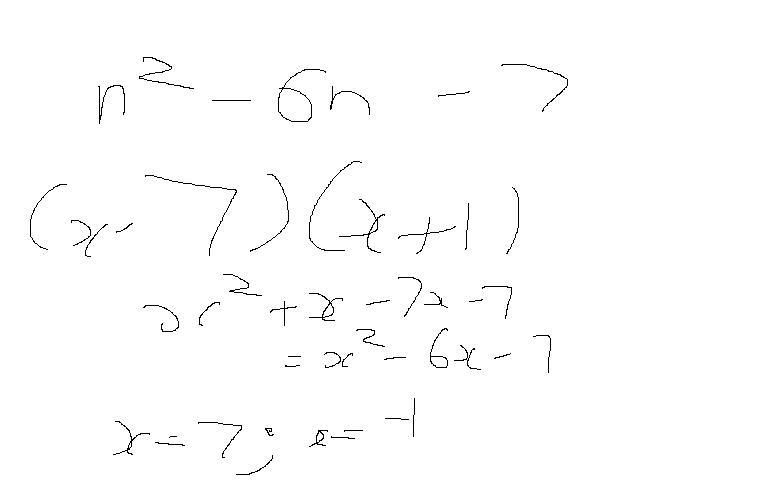 n² - 6n - 7
(x - 7)(x + 1)
x² + x - 7x - 7
= x² - 6x - 7
x = 7; x = -1